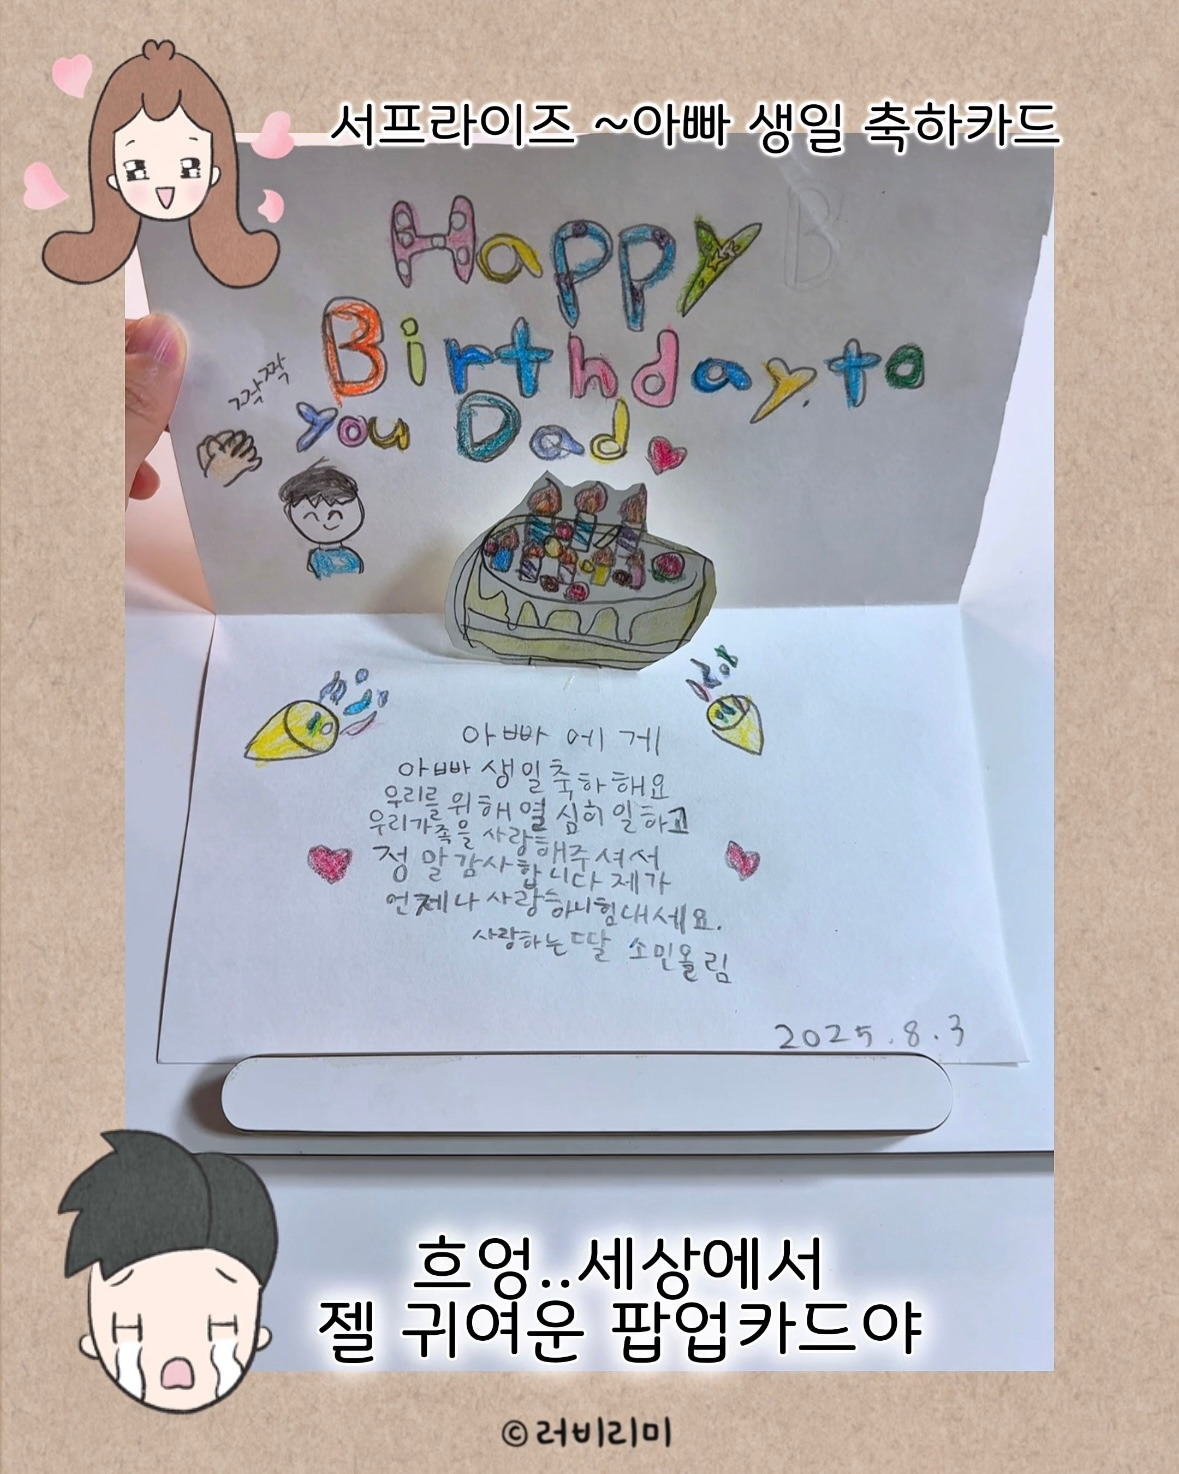 서프라이즈 ~아빠 생일 축하카드
Happy B
Birthday to
짝짝
you Dad
아빠에게
아빠 생일축하해요
우리를 위해 열심히 일하고
우리가족을 사랑해주셔서
정말감사합니다 제가
언제나 사랑하니힘내세요.
사랑하는 딸 소민올림
2025.8.3
흐엉..세상에서
젤 귀여운 팝업카드야
©러비리미